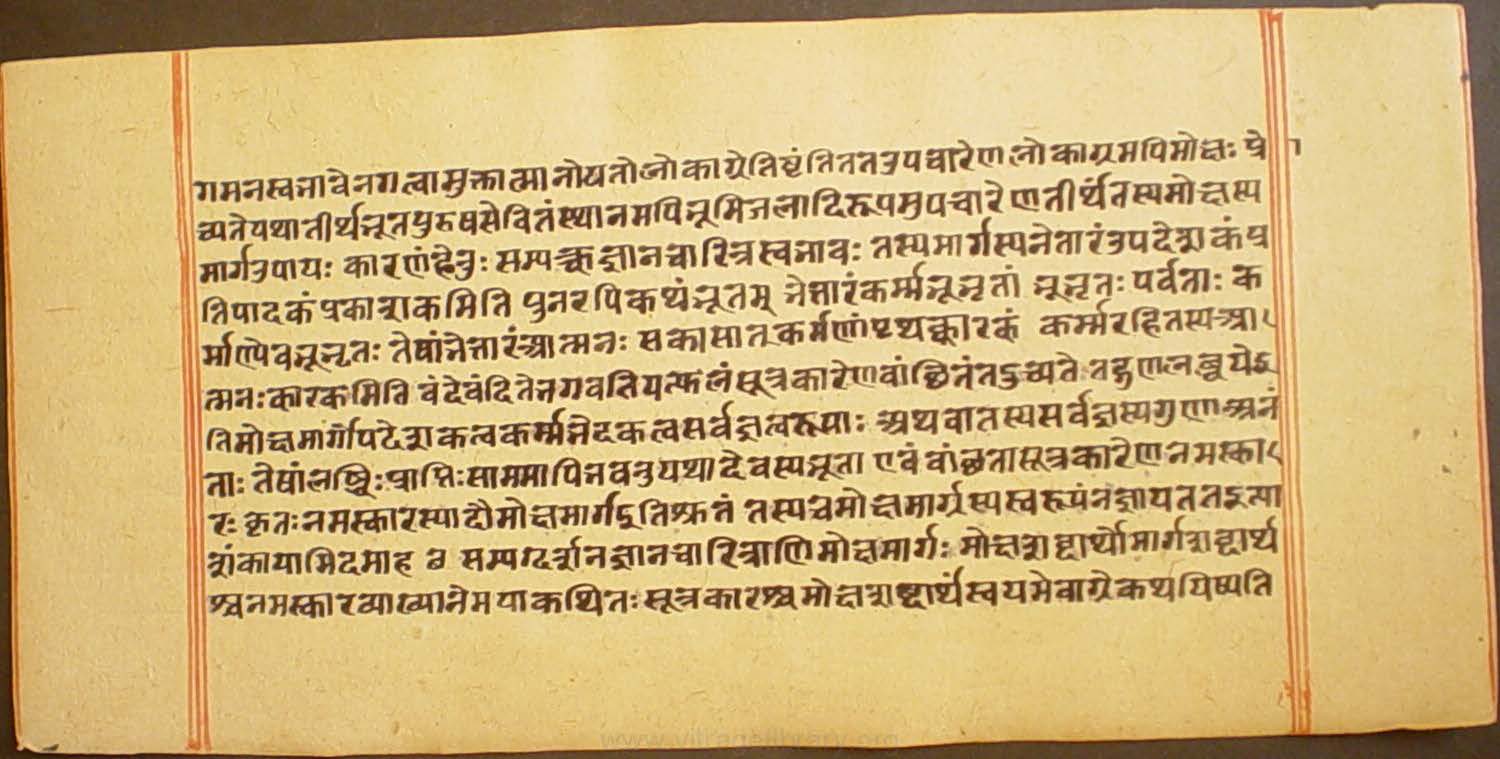 गमनस्वभावेनगत्वामुक्तात्मानोयतोलोकाग्रेतिष्टंतिततउपचारेणलोकाग्रमपिमोक्षः प्रो
च्यतेयथातीर्थभूतपुरुषसेवितंस्थानमपिभूमिजलादिरूपमुपचारेणतीर्थंतस्यमोक्षस्य
मार्गउपायः कारणंहेतुः सम्यक्त्वज्ञानचारित्रस्वभावः तस्यमार्गस्यनेतारंउपदेशकंप्र
तिपादकंप्रकाशकमिति पुनरपिकथंभूतम् भेत्तारंकर्म्मभूभृतां भूभृतः पर्वताः क
र्माण्येवभूभृतः तेषांभेत्तारंआत्मनः सकासात्कर्मणांपृथक्कारकं कर्म्मरहितस्यआ
त्मनःकारकमिति वंदेवंदितेभगवतियत्फलंसूत्रकारेणवांछितंतदुच्यते तद्गुणलब्धयेइ
तिमोक्षमार्गोपदेशकत्वकर्म्मभेदकत्वसर्वज्ञत्वरूपाः अथवातस्यसर्वज्ञस्यगुणाअनं
ताः तेषांलब्धिःप्राप्तिःसाममापिभवतुयथादेवस्यभूता एवंवांछतासूत्रकारेणनमस्का
रः कृतःनमस्कारस्यादौमोक्षमार्गइतिश्रुतं तस्यचमोक्षमार्गस्यस्वरूपंनज्ञायततइत्या
शंकायामिदमाह सम्यग्दर्शनज्ञानचारित्राणिमोक्षमार्गः मोक्षशब्दार्थोमार्गशब्दार्थ
श्चनमस्कारव्याख्यानेमयाकथितःसूत्रकारश्चमोक्षशब्दार्थंस्वयमेवाग्रेकथयिष्यति
www.vitragelibrary.org